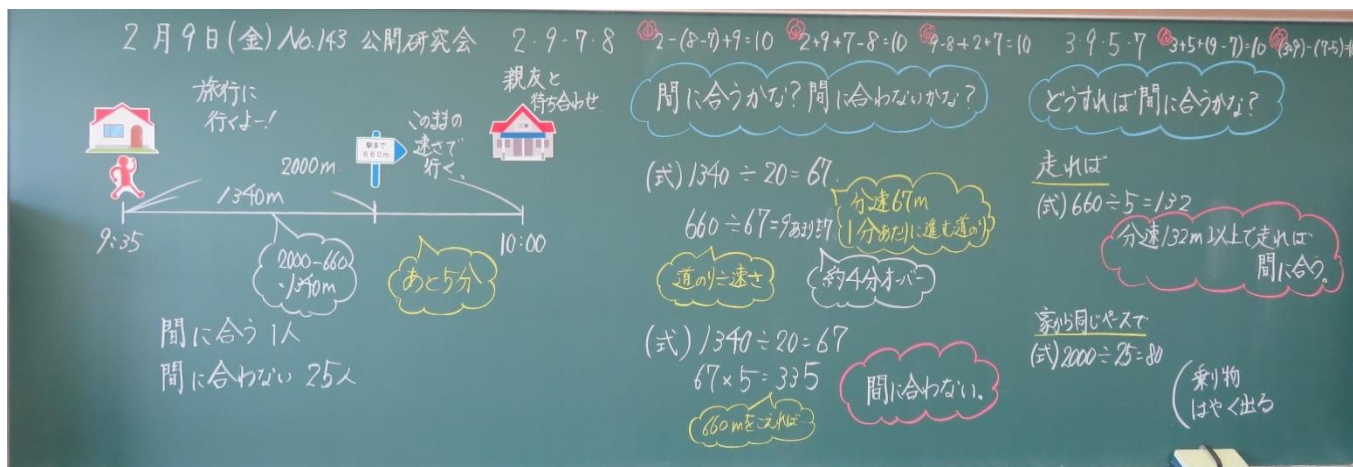 2月9日(金) No.143 公開研究会
2・9・7・8
2-(8-7)+9=10
2+9+7-8=10
9-8+2+7=10
3・9・5・7
3+5+(9-7)=10
(3+9)-(7-5)=10
旅行に
行くよー!
親友と
待ち合わせ
このままの
速さで
行く。
駅まで
660m
2000m
1340m
9:35
10:00
2000-660
=1340m
あと5分
間に合う 1人
間に合わない 25人
間に合うかな?間に合わないかな?
(式) 1340÷20=67
660÷67=9あまり57
分速67m
1分あたりに進む道のり
道のり÷速さ
約4分オーバー
(式) 1340÷20=67
67×5=335
660mをこえれば
間に合わない。
どうすれば間に合うかな?
走れば
(式) 660÷5=132
分速132m以上で走れば
間に合う。
家から同じペースで
(式) 2000÷25=80
乗り物
はやく出る